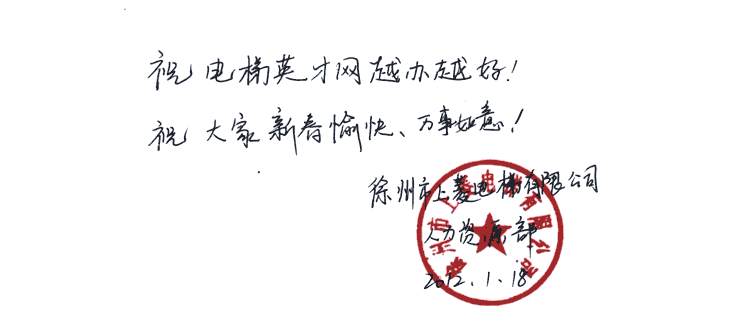 祝电梯英才网越办越好！
祝大家新春愉快、万事如意！
徐州市上菱电梯有限公司
人力资源部
2012.1.18
徐州市上菱电梯有限公司